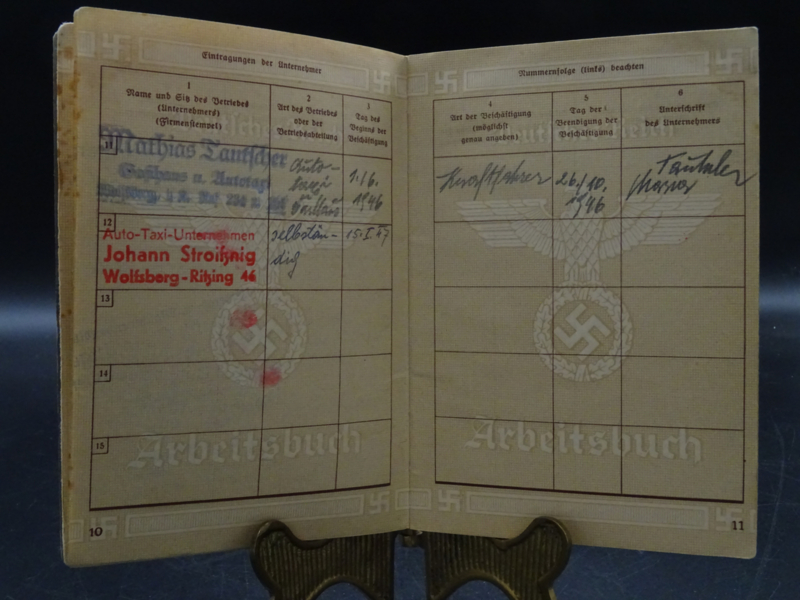 Eintragungen der Unternehmer
1
Name und Sitz des Betriebes
(Unternehmers)
(Firmenstempel)
2
Art des Betriebes
oder der
Betriebsabteilung
3
Tag des
Beginns der
Beschäftigung
11
Mathias Tautscher
Gasthaus u. Autotaxi
Wolfsberg,
Auto-
taxi
1./6.
1946
12
Auto-Taxi-Unternehmen
Johann Stroißnig
Wolfsberg-Ritzing 46
selbstän-
dig
15.I.47
13
14
15
Arbeitsbuch
10
Nummernfolge (links) beachten
4
Art der Beschäftigung
(möglichst
genau angeben)
5
Tag der
Beendigung der
Beschäftigung
6
Unterschrift
des Unternehmers
Kraftfahrer
26./10.
1946
Arbeitsbuch
11